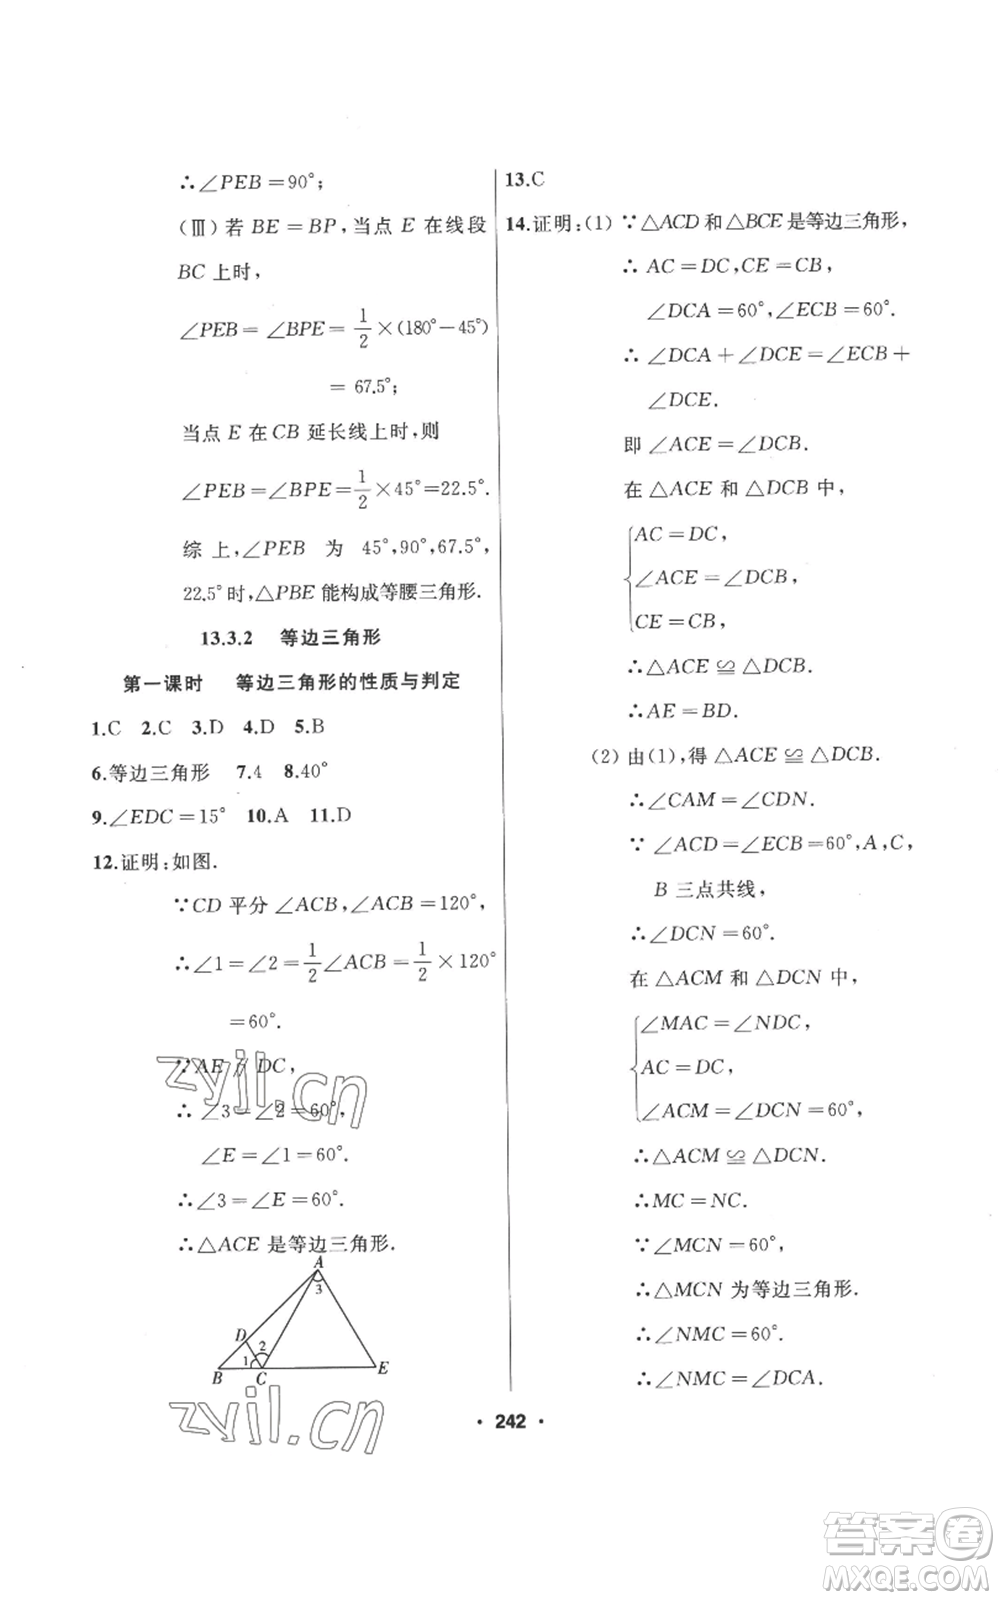 ∴∠PEB=90°;
(Ⅲ)若 BE=BP,当点 E 在线段
BC 上时,
∠PEB=∠BPE=1/2×(180°-45°)
=67.5°;
当点 E 在 CB 延长线上时,则
∠PEB=∠BPE=1/2×45°=22.5°.
综上,∠PEB 为 45°,90°,67.5°,
22.5°时,△PBE 能构成等腰三角形.
13.3.2 等边三角形
第一课时 等边三角形的性质与判定
1.C 2.C 3.D 4.D 5.B
6.等边三角形 7.4 8.40°
9.∠EDC=15° 10.A 11.D
12.证明:如图.
∵CD 平分 ∠ACB,∠ACB=120°,
∴∠1=∠2=1/2∠ACB=1/2×120°
=60°.
∵AE∥DC,
∴∠3=∠2=60°,
∠E=∠1=60°.
∴∠3=∠E=60°.
∴△ACE 是等边三角形.
A
3
D
2
1
B C E
13.C
14.证明:(1) ∵△ACD 和△BCE 是等边三角形,
∴ AC=DC,CE=CB,
∠DCA=60°,∠ECB=60°.
∴ ∠DCA+∠DCE=∠ECB+
∠DCE.
即 ∠ACE=∠DCB.
在 △ACE 和 △DCB 中,
AC=DC,
∠ACE=∠DCB,
CE=CB,
∴△ACE≌△DCB.
∴AE=BD.
(2) 由(1),得 △ACE≌△DCB.
∴∠CAM=∠CDN.
∵ ∠ACD=∠ECB=60°,A,C,
B 三点共线,
∴∠DCN=60°.
在 △ACM 和 △DCN 中,
∠MAC=∠NDC,
AC=DC,
∠ACM=∠DCN=60°,
∴△ACM≌△DCN.
∴MC=NC.
∵∠MCN=60°,
∴△MCN 为等边三角形.
∴∠NMC=60°.
∴∠NMC=∠DCA.
· 242 ·
zyjl.cn
zyjl.cn
答案卷
MXQE.COM